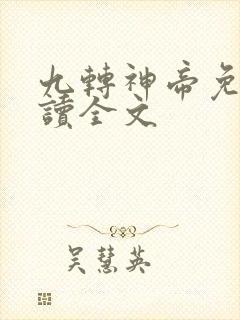 九轉神帝免
讀全文
吴慧英